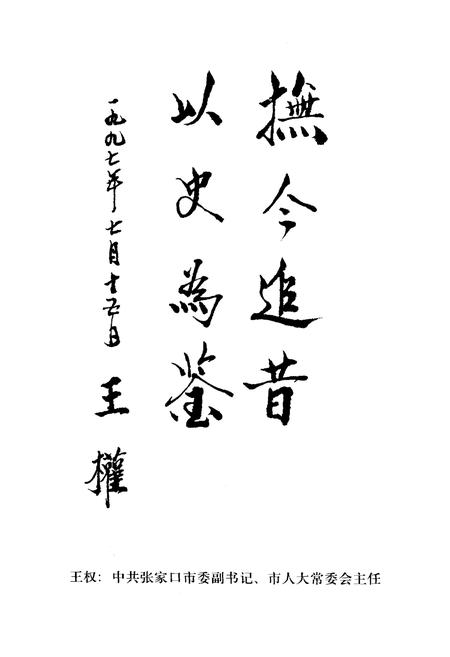 撫今追昔
以史為鉴
一九九七年七月十五日
王權
王权：中共张家口市委副书记、市人大常委会主任